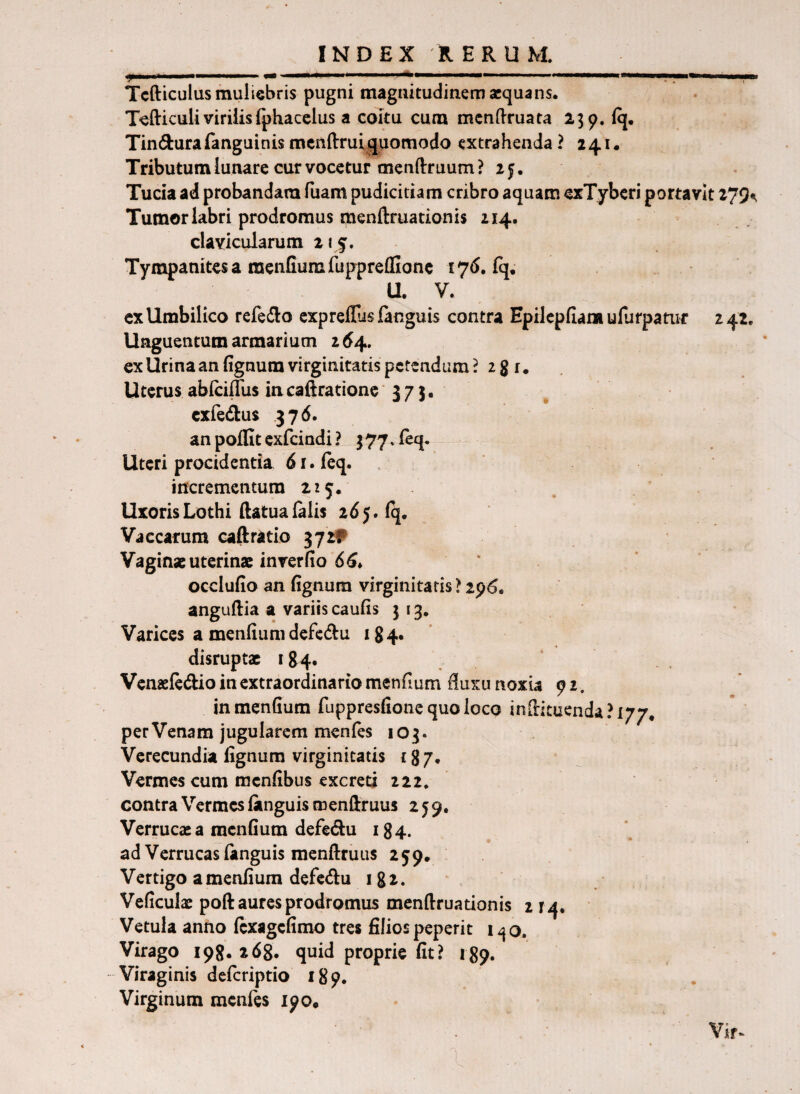 INDEX RERUM.
Teſticulus muliebris pugni magnitudinem æquans.
Teſticuli virilis ſphacelus a coitu cum menſtruata 239. ſq.
Tinctura ſanguinis menſtrui quomodo extrahenda? 241.
Tributum lunare cur vocetur menſtruum? 25.
Tucia ad probandam ſuam pudicitiam cribro aquam exTyberi portavit 279.
Tumor labri prodromus menſtruationis 214.
clavicularum 215.
Tympanites a menſium ſuppreſſione 176. ſq.
U. V.
ex Umbilico reſecto expreſſus ſanguis contra Epilepſiam uſurpatur 242.
Unguentum armarium 264.
ex Urina an ſignum virginitatis petendum? 281.
Uterus abſciſſus in caſtratione 373.
exſectus 376.
an poſſit exſcindi? 377. ſeq.
Uteri procidentia 61. ſeq.
incrementum 225.
Uxoris Lothi ſtatua ſalis 265. ſq.
Vaccarum caſtratio 372.
Vaginæ uterinæ inverſio 66.
occluſio an ſignum virginitatis? 296.
anguſtia a variis cauſis 313.
Varices a menſium defectu 184.
disruptæ 184.
Venæſectio in extraordinario menſium fluxu noxia 92.
in menſium ſuppresſione quo loco inſtituenda? 177.
per Venam jugularem menſes 103.
Verecundia ſignum virginitatis 187.
Vermes cum menſibus excreti 222.
contra Vermes ſanguis menſtruus 259.
Verrucæ a menſium defectu 184.
ad Verrucas ſanguis menſtruus 259.
Vertigo a menſium defectu 182.
Veſiculæ poſt aures prodromus menſtruationis 214.
Vetula anno ſexageſimo tres filios peperit 140.
Virago 198. 268. quid proprie ſit? 189.
Viraginis deſcriptio 189.
Virginum menſes 190.
Vir-